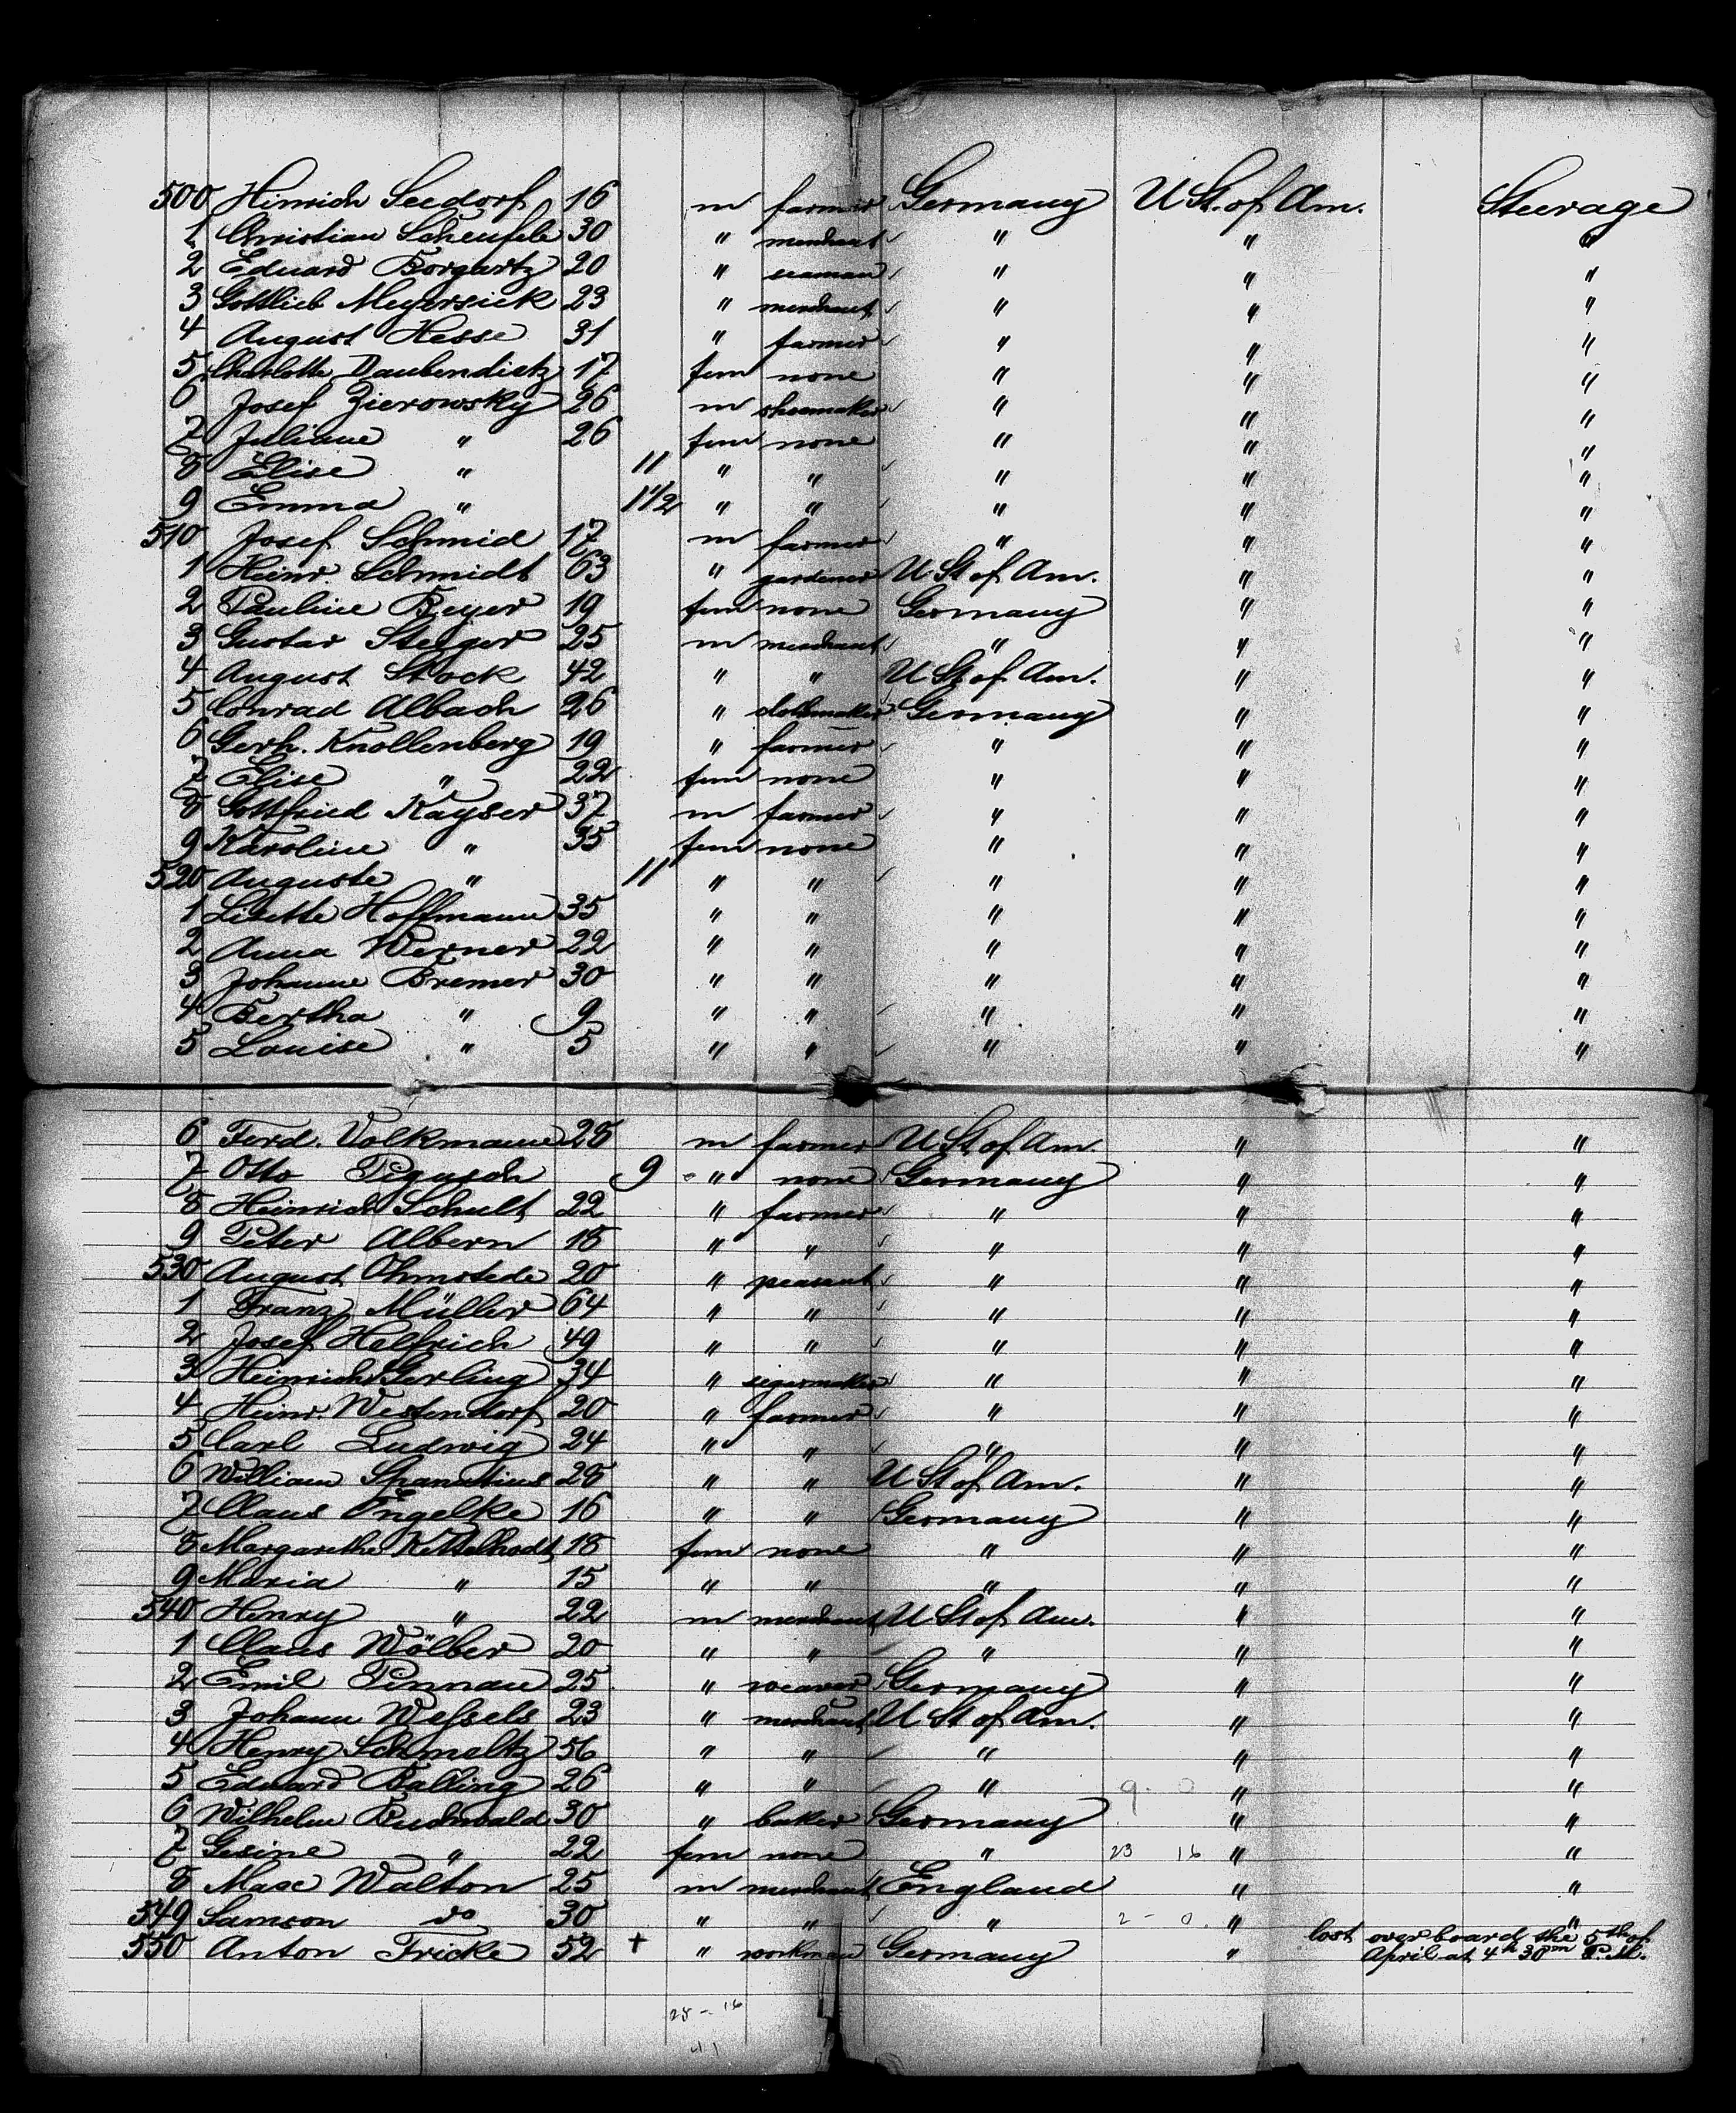 500 Hinrich Seedorf 16 m farmer Germany U St. of Am. Steerage
1 Christian Scheufele 30 " merchant " " "
2 Eduard Borgartz 20 " seaman " " "
3 Gottlieb Meyersiek 23 " merchant " " "
4 August Hesse 31 " farmer " " "
5 Charlotte Daubendietz 17 fem none " " "
6 Josef Zierowsky 26 m shoemaker " " "
7 Juliane " 26 fem none " " "
8 Elise " 11 " " " " "
9 Emma " 1 1/2 " " " " "
510 Josef Schmid 17 m farmer " " "
1 Heinr. Schmidt 63 " gardener U St of Am. " "
2 Pauline Beyer 19 fem none Germany " "
3 Gustav Steiger 25 m merchant " " "
4 August Stock 42 " " U St of Am. " "
5 Conrad Albach 26 " clothmaker Germany " "
6 Gerh. Knollenberg 19 " farmer " " "
7 Elise " 22 fem none " " "
8 Gottfried Kayser 37 m farmer " " "
9 Karoline " 35 fem none " " "
520 Auguste " 11 " " " " "
1 Lisette Hoffmann 35 " " " " "
2 Anna Werner 22 " " " " "
3 Johanne Bremer 30 " " " " "
4 Bertha " 9 " " " " "
5 Louise " 5 " " " " "
6 Ferd. Volkmann 28 m farmer U St of Am. " "
7 Otto 9 " none Germany " "
8 Heinrich Schult 22 " farmer " " "
9 Peter Albern 18 " " " " "
530 August Ohmstede 20 " peasant " " "
1 Franz Müller 64 " " " " "
2 Josef Helfrich 49 " " " " "
3 Heinrich Gerling 34 " segarmaker " " "
4 Heinr. Westendorf 20 " farmer " " "
5 Carl Ludwig 24 " " " " "
6 William Spanutius 28 " " U St of Am. " "
7 Claus Engelke 16 " " Germany " "
8 Margarethe Kettelhodt 18 fem none " " "
9 Maria " 15 " " " " "
540 Henry " 22 m merchant U St of Am. " "
1 Claus Wölber 20 " " " " "
2 Emil Pinnau 25 " weaver Germany " "
3 Johann Wessels 23 " merchant U St of Am. " "
4 Henry Schmeltz 56 " " " " "
5 Eduard Balling 26 " " " 9. 0 " "
6 Wilhelm Buchwald 30 " baker Germany " "
7 Gesine " 22 fem none " 23 16 " "
8 Max Walton 25 m merchant England " "
549 Samson do 30 " " " 2 - 0. " "
550 Anton Fricke 52 + " workman Germany " lost over board the 5th of
April at 4h 30m P.M.
25 - 16
41